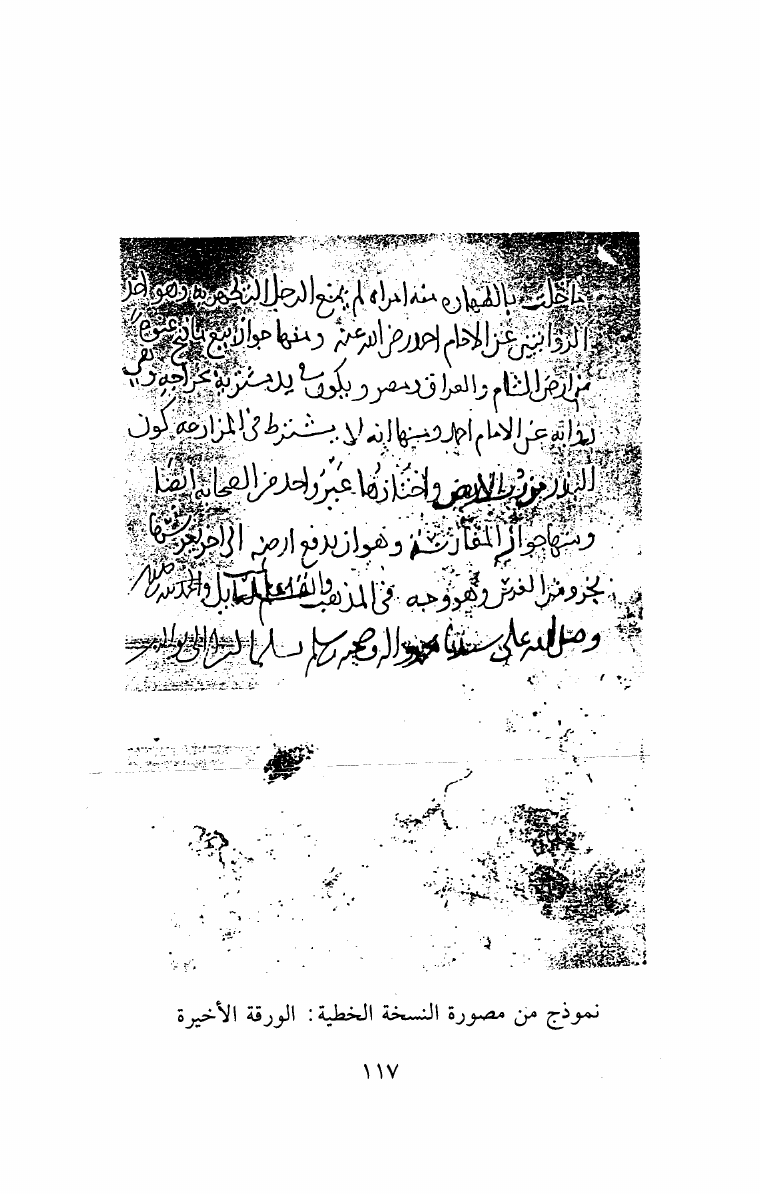 ما خلت بالطهاره منه امراه لم يمنع الرجل التطهر به وهو احد
الروايتين عن الامام احمد رضي الله عنه ومنها جواز بيع ما فتح عنوه
من ارض الشام والعراق ومصر ويكون في يد مشتريه بخراجه وفي
روايه عن الامام احمد ومنها انه لا يشترط في المزارعه كون
البذر من رب الارض واختارها غير واحد من الصحابه ايضا
ومنها جواز المغارسة وهو ان يدفع ارضه الى اخر يغرسها
بجزو من الغرس وهو وجه في المذهب والحمد لله
وصلى الله على سيدنا محمد واله وصحبه وسلم تسليما الى يوم
نموذج من مصورة النسخة الخطية: الورقة الأخيرة
١١٧